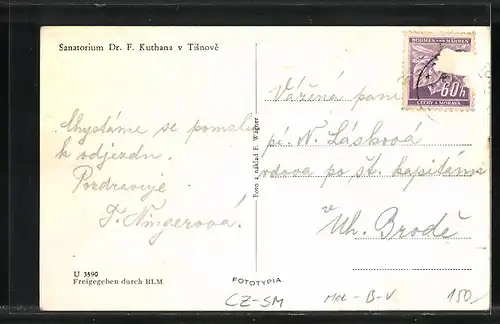 Sanatorium Dr. F. Kuthana v Tišnově
BÖHMEN UND MÄHREN
60 h
ČECHY A MORAVA
Vážená paní
pí. N. Lásková
vdova po št. kapitánu
ve
Uh. Brodě
Chystáme se pomalu
k odjezdu.
Pozdravuje
F. Ningerová.
Foto a náklad F. Wagner
U 3590
Freigegeben durch RLM
FOTOTYPIA
CZ-SM
B-V
150,-